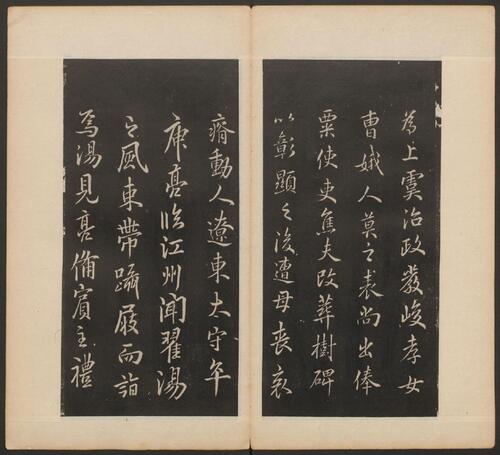 為上虞治政嚴峻孝女
曹娥人莫之表尚出俸
粟使吏焦夫改葬樹碑
以彰顯之後遭母喪哀
瘠動人遼東太守年
庾亮臨江州聞翟湯
之風束帶躡屐而詣
焉湯見亮備賓主禮